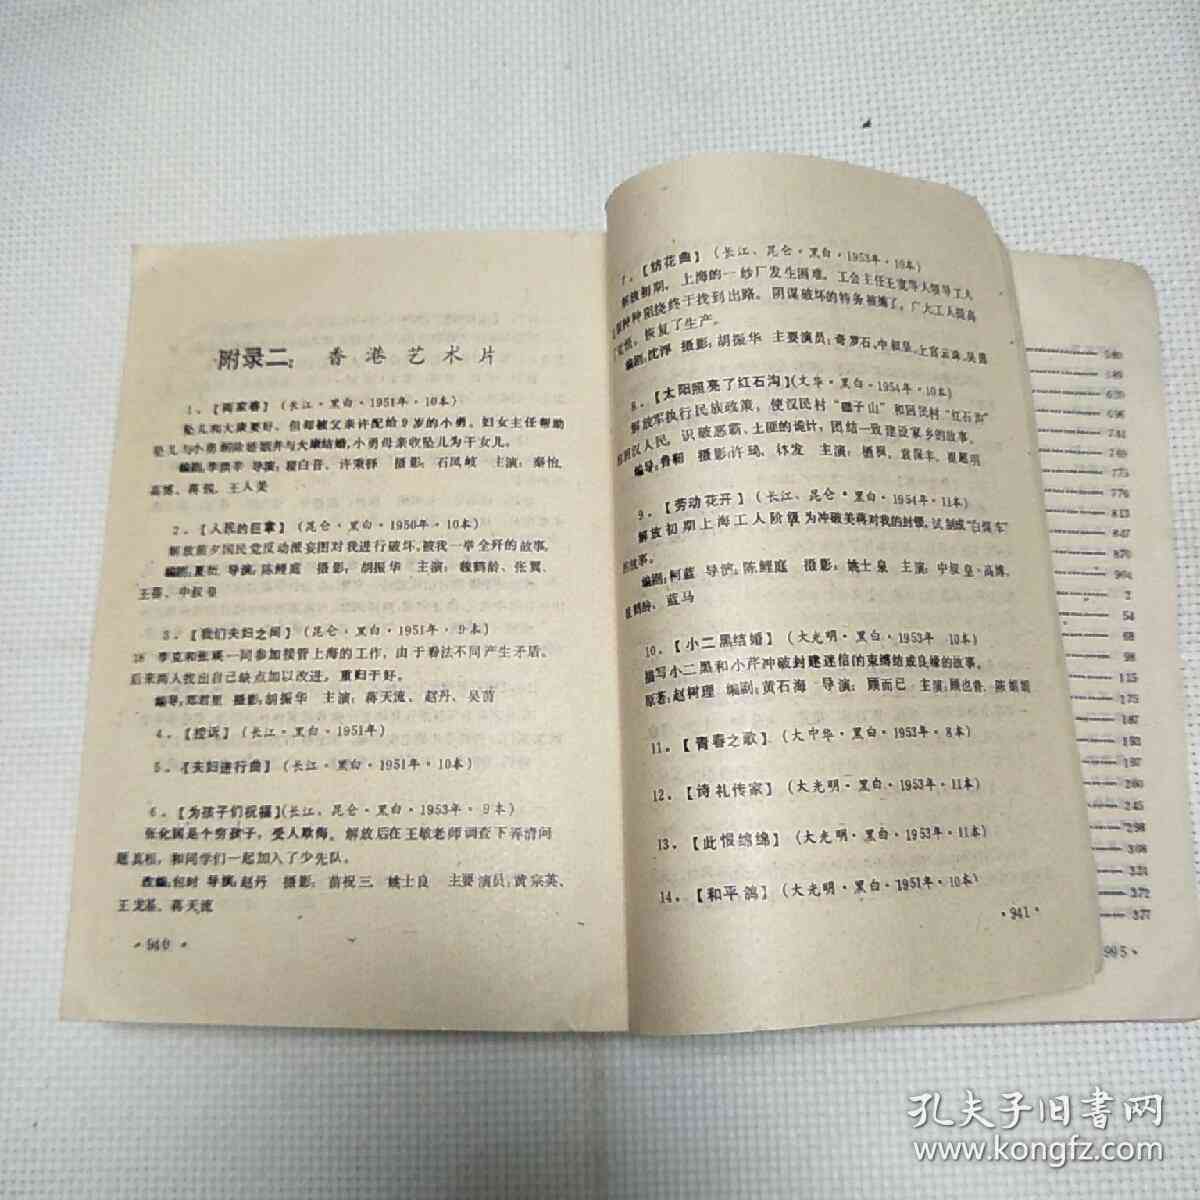 附录二： 香港艺术片
1．【两家春】（长江·黑白·1951年·10本）
坠儿和大康要好，但却被父亲许配给9岁的小勇。妇女主任帮助
坠儿与小勇解除婚姻并与大康结婚，小勇母亲收坠儿为干女儿。
编剧：李洪辛 导演：瞿白音、许秉铎 摄影：石凤岐 主演：秦怡、
高博、蒋锐、王人美
2．【人民的巨掌】（昆仑·黑白·1950年·10本）
解放前夕国民党反动派妄图对我进行破坏，被我一举全歼的故事。
编剧：夏衍 导演：陈鲤庭 摄影：胡振华 主演：魏鹤龄、张翼、
王蓓、中叔皇
3．【我们夫妇之间】（昆仑·黑白·1951年·9本）
李克和张瑛一同参加接管上海的工作，由于看法不同产生矛盾。
后来两人找出自己缺点加以改进，重归于好。
编导：郑君里 摄影：胡振华 主演：蒋天流、赵丹、吴茵
4．【控诉】（长江·黑白·1951年）
5．【夫妇进行曲】（长江·黑白·1951年·10本）
6．【为孩子们祝福】（长江、昆仑·黑白·1953年·9本）
张化国是个穷孩子，受人欺侮。解放后在王敏老师调查下弄清问
题真相，和同学们一起加入了少先队。
改编：包时 导演：赵丹 摄影：苗祝三、姚士良 主要演员：黄宗英、
王龙基、蒋天流
·940·
7．【纺花曲】（长江、昆仑·黑白·1953年·10本）
解放初期，上海的一纱厂发生困难。工会主任王宽等人领导工人
种种阻挠终于找到出路。阴谋破坏的特务被捕了，广大工人提高
，恢复了生产。
编剧：沈浮 摄影：胡振华 主要演员：奇罗石、中叔皇、上官云珠、吴茵
8．【太阳照亮了红石沟】（文华·黑白·1954年·10本）
解放军执行民族政策，使汉民村“疆子山”和回民村“红石沟”
人民，识破恶霸、土匪的诡计，团结一致建设家乡的故事。
编导：鲁韧 摄影：许琦、林发 主演：穗枫、袁保丰、崔超明
9．【劳动花开】（长江、昆仑·黑白·1954年·11本）
解放初期上海工人阶级为冲破美蒋对我的封锁，试制成“白煤车”
的故事。
编剧：柯蓝 导演：陈鲤庭 摄影：姚士泉 主演：中叔皇·高博、
魏鹤龄，蓝马
10．【小二黑结婚】（大光明·黑白·1953年 10本）
描写小二黑和小芹冲破封建迷信的束缚结成良缘的故事。
原著：赵树理 编剧：黄石海 导演：顾而已 主演：顾也鲁、陈娟娟
11．【青春之歌】（大中华·黑白·1953年·8本）
12．【诗礼传家】（大光明·黑白·1953年·11本）
13．【此恨绵绵】（大光明·黑白·1953年·11本）
14．【和平鸽】（大光明·黑白·1951年·10本）
·941·
775
776
813
847
870
904
2
54
68
98
115
175
187
193
227
260
245
298
308
324
372
377
905·
孔夫子旧书网
www.kongfz.com